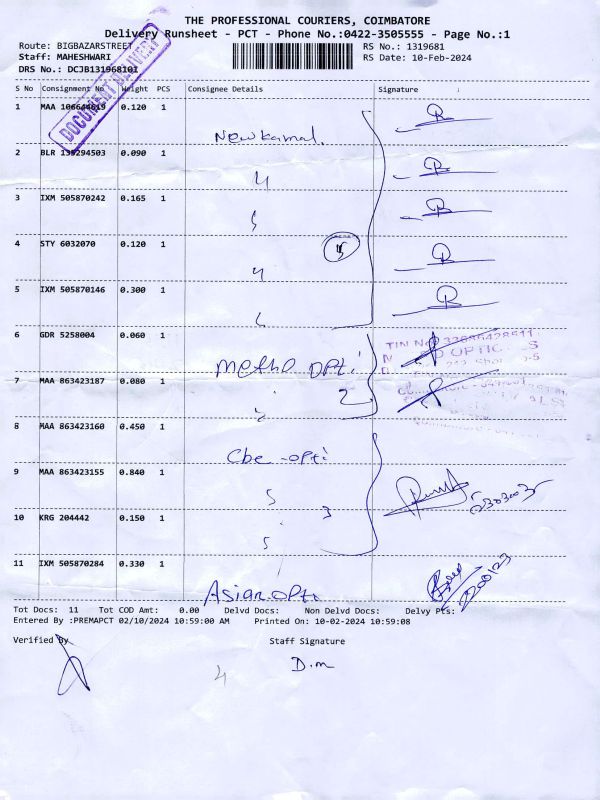 THE PROFESSIONAL COURIERS, COIMBATORE
Delivery Runsheet - PCT - Phone No.:0422-3505555 - Page No.:1
Route: BIGBAZARSTREET
RS No.: 1319681
Staff: MAHESHWARI
RS Date: 10-Feb-2024
DRS No.: DCJB131968101
DOCUMENT DELIVERY
S No Consignment No Weight PCS Consignee Details Signature
1 MAA 106644619 0.120 1
New kamal.
2 BLR 139294503 0.090 1
3 IXM 505870242 0.165 1
4 STY 6032070 0.120 1
5 IXM 505870146 0.300 1
6 GDR 5258004 0.060 1
Metho opti
7 MAA 863423187 0.080 1
2
8 MAA 863423160 0.450 1
Cbe -opti
9 MAA 863423155 0.840 1
10 KRG 204442 0.150 1
3
11 IXM 505870284 0.330 1
Asian opti
Tot Docs: 11 Tot COD Amt: 0.00 Delvd Docs: Non Delvd Docs: Delvy Pts:
Entered By :PREMAPCT 02/10/2024 10:59:00 AM Printed On: 10-02-2024 10:59:08
Verified By
Staff Signature
D.m